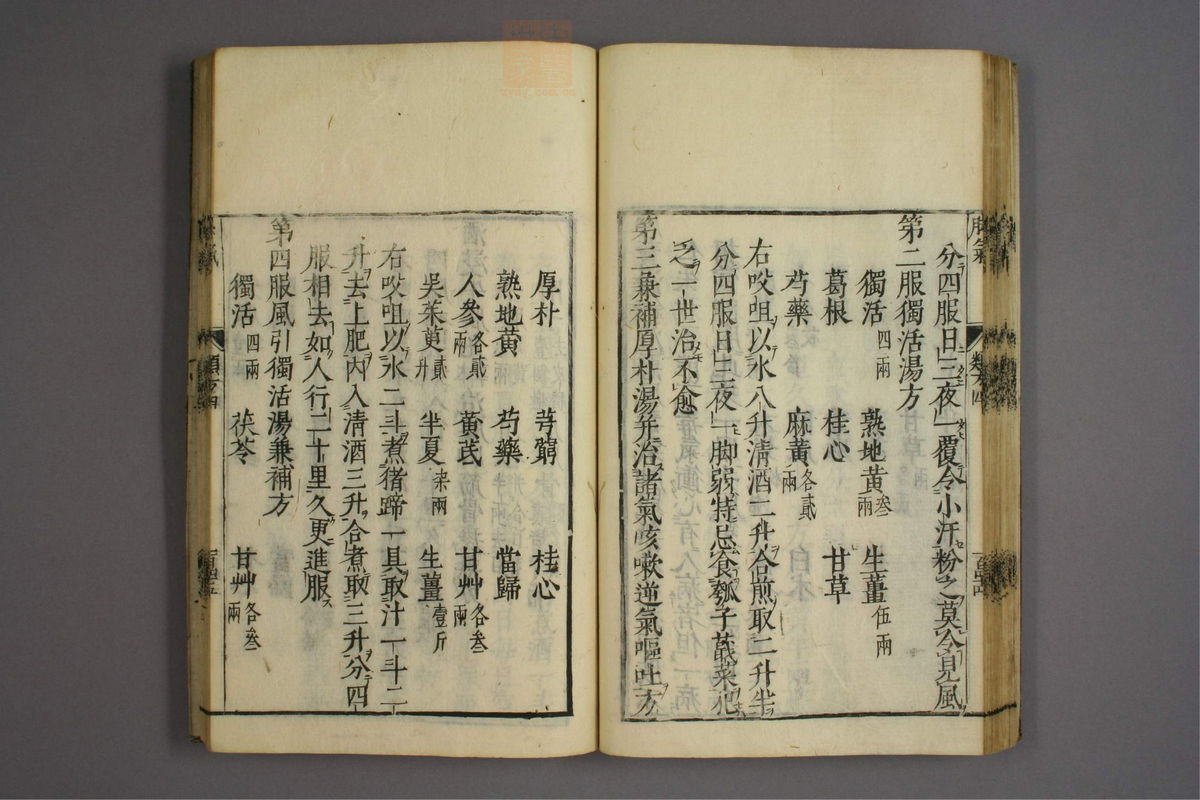 分四服日三夜一覆令小汗粉之莫令見風
第二服獨活湯方
獨活四兩 熟地黃叁兩 生薑伍兩
葛根 桂心 甘草
芍藥 麻黃各貳兩
右㕮咀以水八升清酒二升合煎取二升半
分四服日三夜一脚弱特忌食瓠子蕺菜犯
之一世治不愈
第三兼補厚朴湯并治諸氣咳嗽逆氣嘔吐方
厚朴 芎藭 桂心
熟地黃 芍藥 當歸
人參各貳兩 黃芪 甘艸各叁兩
吳茱萸貳升 半夏柒兩 生薑壹斤
右㕮咀以水二斗煮猪蹄一具取汁一斗二
升去上肥内入清酒三升合煮取三升分四
服相去如人行二十里久更進服
第四服風引獨活湯兼補方
獨活四兩 茯苓 甘艸各叁兩